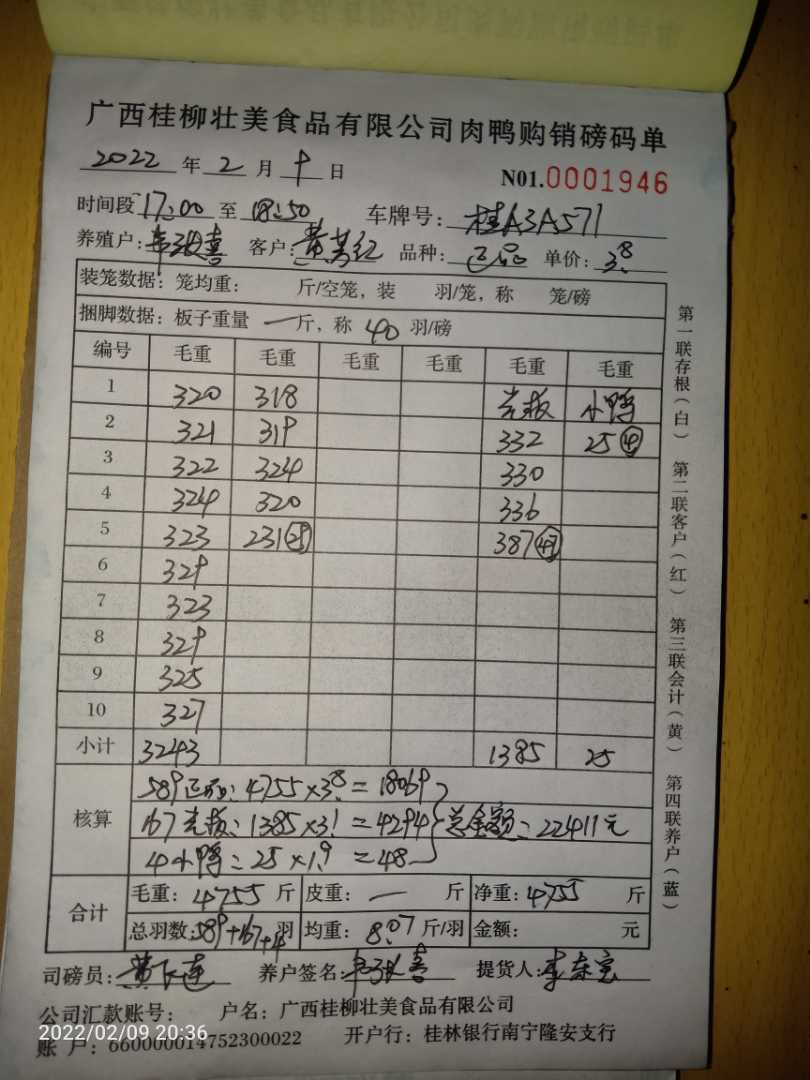 广西桂柳壮美食品有限公司肉鸭购销磅码单
2022 年 2 月 9 日 N01.0001946
时间段 17:00 至 18:50 车牌号: 桂A3A571
养殖户: 喜 客户: 黄 红 品种: 正品 单价: 3.8
装笼数据: 笼均重: 斤/空笼, 装 羽/笼, 称 笼/磅
捆脚数据: 板子重量 一 斤, 称 40 羽/磅
编号 毛重 毛重 毛重 毛重 毛重 毛重
1 320 318 光板 小鸭
2 321 319 332 25 ④
3 322 324 330
4 324 320 336
5 323 231 387 47
6 329
7 323
8 329
9 325
10 327
小计 3243 1385 25
核算
589正品: 4755×3.8=18069
167光板: 1385×3.1=4294 总金额: 22411元
4小鸭: 25×1.9=48
合计
毛重: 4755 斤 皮重: 一 斤 净重: 4755 斤
总羽数: 589+167+4 羽 均重: 8.07 斤/羽 金额: 元
司磅员: 黄 莲 养户签名: 喜 提货人: 李 宝
公司汇款账号: 户名: 广西桂柳壮美食品有限公司
账 户: 660000014752300022 开户行: 桂林银行南宁隆安支行
2022/02/09 20:36
第一联存根(白) 第二联客户(红) 第三联会计(黄) 第四联养户(蓝)